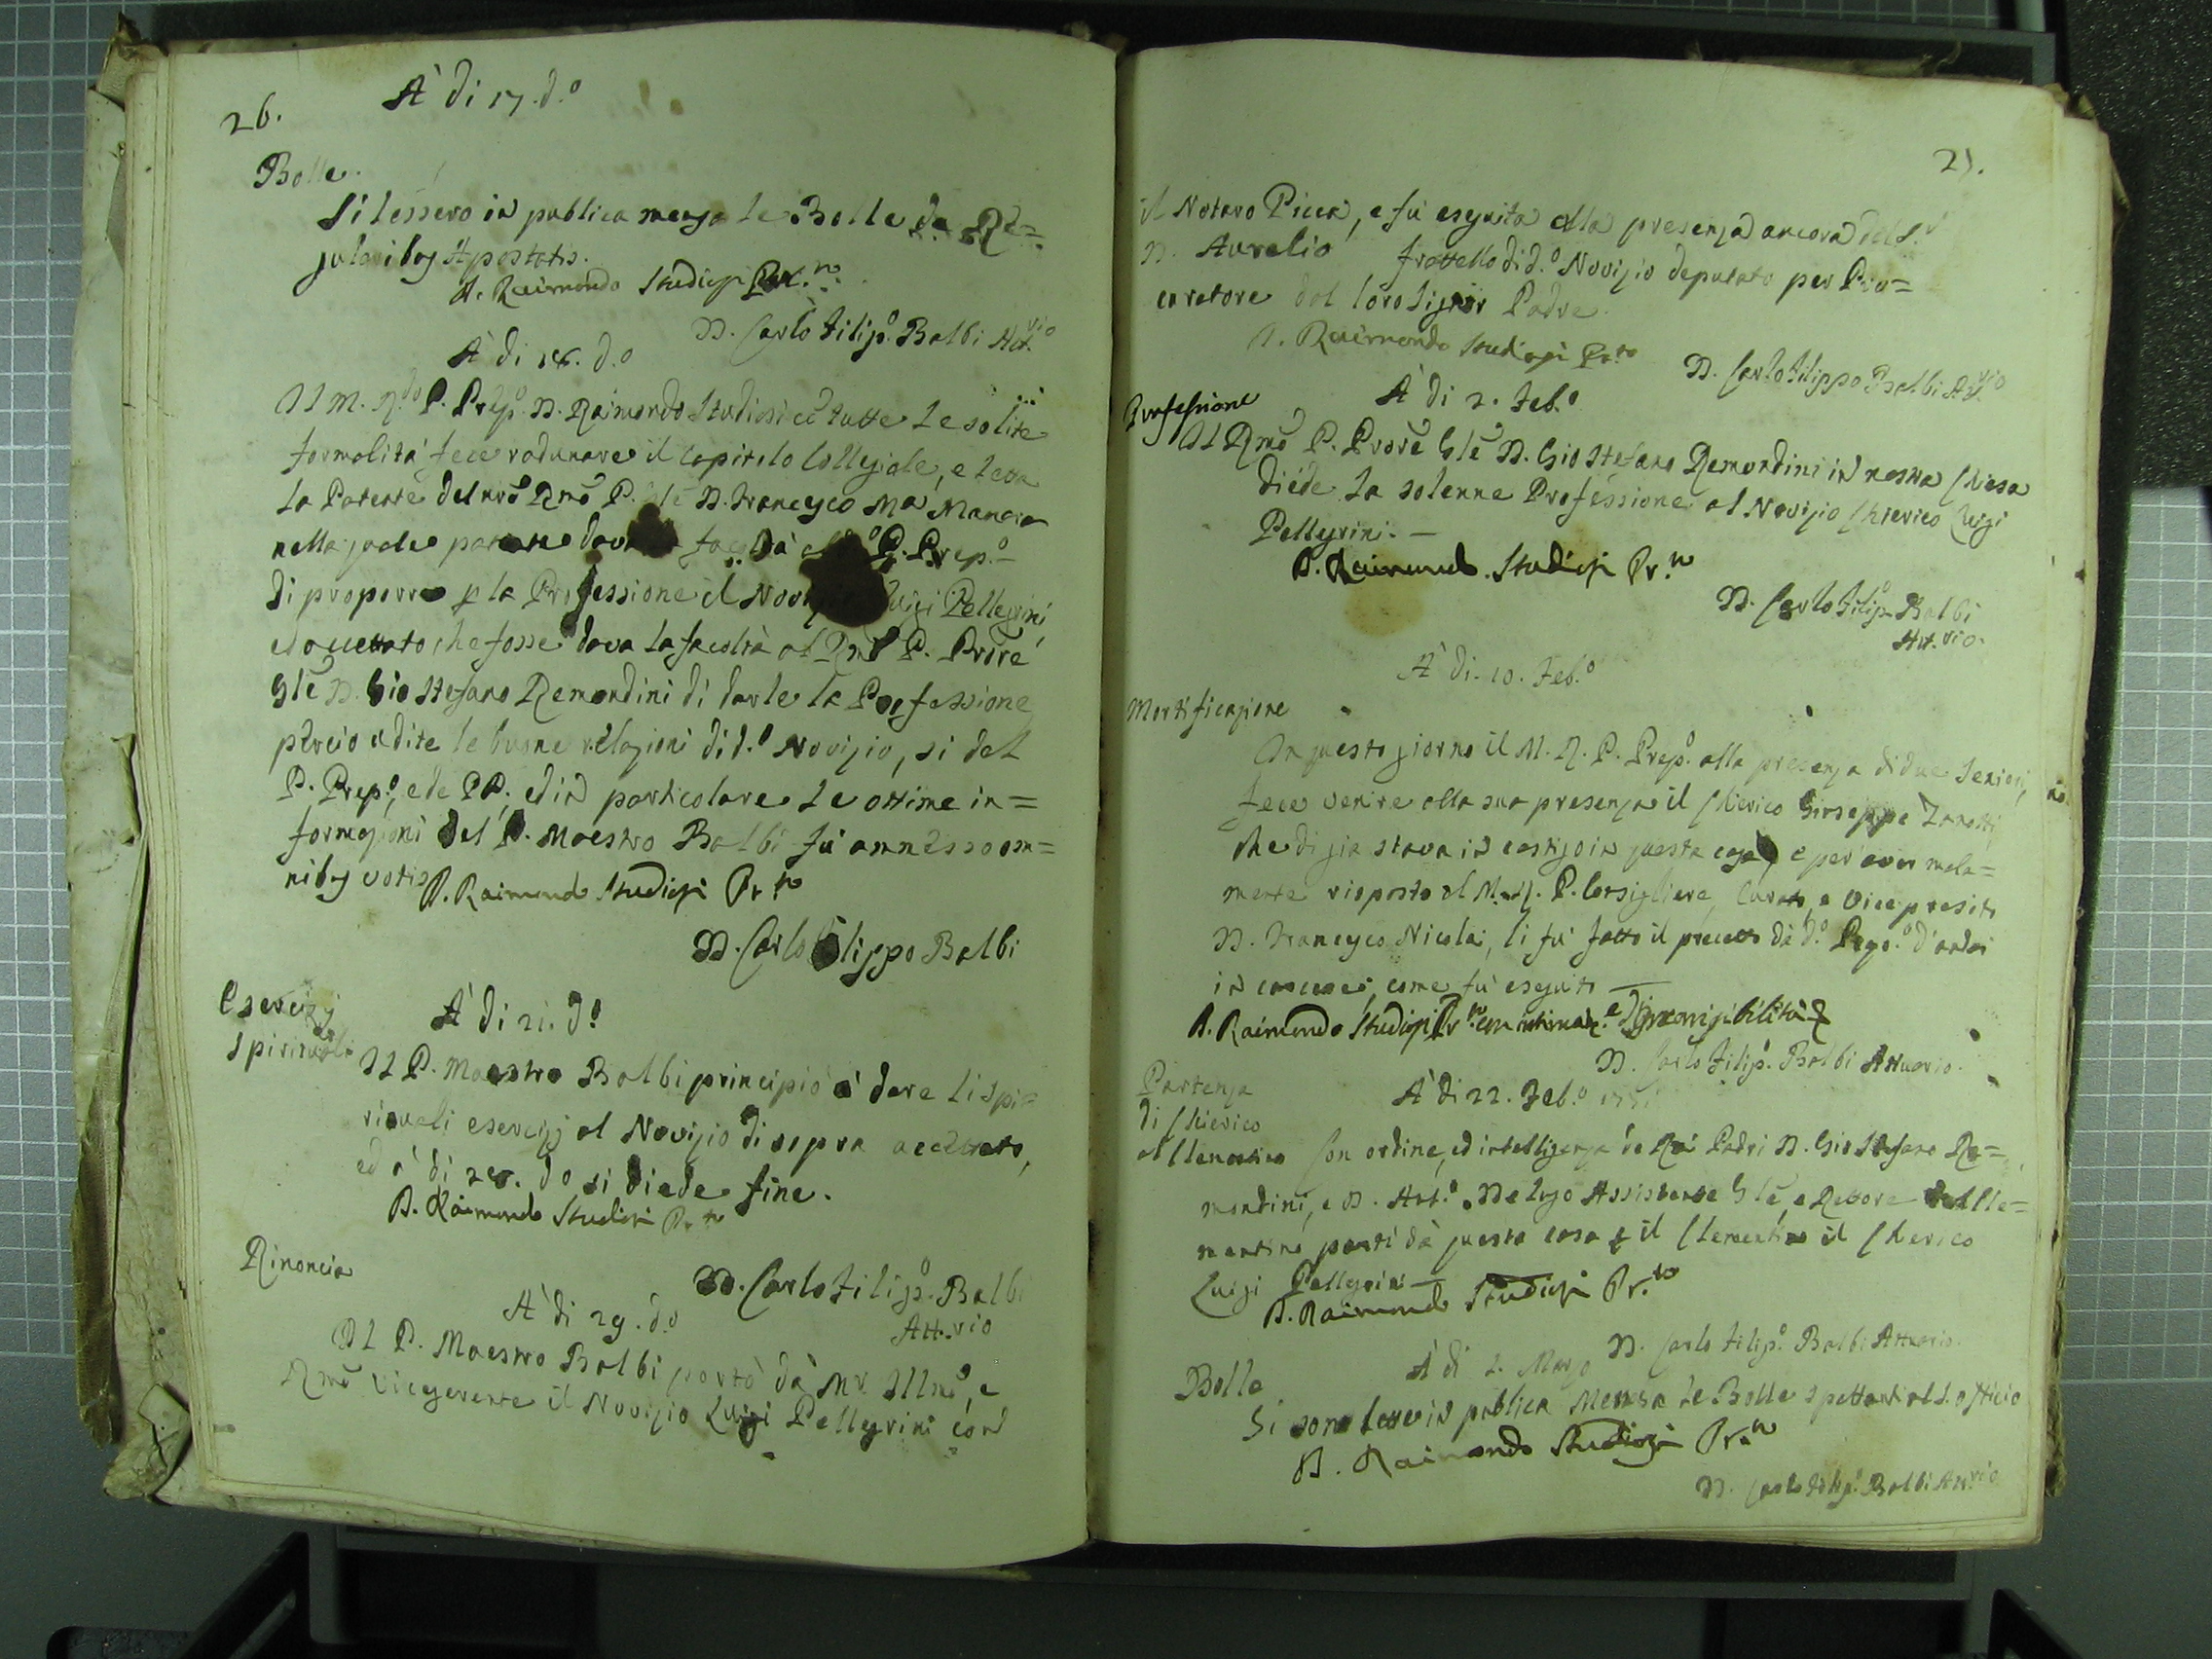 26.
A' di 17. d.º
Bolle.
Si lessero in publica mensa le Bolle de Re=
gularibus Apostatis.
D. Raimondo Studiosi Pr.to
D. Carlo Filip.º Balbi Att.vio
A' di 18. d.º
Il M. R.do P. Prep.º D. Raimondo Studiosi cõ tutte le solite
formalità fece radunare il Capitolo Collegiale, e letta
la Patente del nrõ Rmõ P. Glẽ D. Francesco Ma Manara
nella quale patente dava facoltà P. Prep.º
di proporre p la Professione il Luigi Pellegrini,
ed accettato che fosse dava la facoltà al Rmõ P. Prorẽ
Glẽ D. Gio Stefano Remondini di darle la Professione
perciò udite le buone relazioni di d.º Novizio, sì del
P. Prep.º, e de PP., ed in particolare le ottime in=
formazioni del P. Maestro Balbi fù ammesso om=
nibus votis
D. Raimondo Studiosi Pr.to
D. Carlo Filippo Balbi
Esercizj
Spirituali
A' di 21. d.º
Il P. Maestro Balbi principiò a' dare li spi=
rituali esercizj al Novizio di sopra accettato,
ed a' di 28. d.º si diede fine.
D. Raimondo Studiosi Pr.to
D. Carlo Filip.º Balbi
Att.vio
Rinoncia
A' di 29. d.º
Il P. Maestro Balbi portò dà Mr. Illmõ, e
Rmõ Vicegerente il Novizio Luigi Pellegrini con
27.
il Notaro Picca, e fù eseguita alla presenza ancora del S.r
D. Aurelio fratello di d.º Novizio deputato per Pro=
curatore dal loro Signor Padre.
D. Raimondo Studiosi Pr.to
D. Carlo Filippo Balbi Att.vio
A' di 2. Feb.º
Professione
Il Rmõ P. Prorẽ Glẽ D. Gio Stefano Remondini in nostra Chiesa
diede la solenne Professione al Novizio Chierico Luigi
Pellegrini. —
D. Raimondo Studiosi Pr.to
D. Carlo Filip.º Balbi
Att.vio
A' di. 10. Feb.º
Mortificazione
In questo giorno il M. R. P. Prep.º alla presenza di due Seniori,
fece venire alla sua presenza il Chierico Giuseppe Zanotti,
che di già stava in castigo in questa casa, e per aver mala=
mente risposto al M. R. P. Consigliere, Curato, e Vice preposito
D. Francesco Nicolai, li fù fatto il precetto dà d.º Prep.º d'andar
in carcere, come fù eseguito —
D. Raimondo Studiosi Pr.to con intimaz.e d'Incorrigibilità
D. Carlo Filip.º Balbi Attuario.
Partenza
di Chierico
al Clementino
A' di 22. Feb.º
Con ordine, ed intelligenza de Rmi Padri D. Gio Stefano Re=
mondini, e D. Ant.º De Lugo Assistente Glẽ, e Rettore del Cle=
mentino partì dà questa casa p il Clementino il Chierico
Luigi Pellegrini —
D. Raimondo Studiosi Pr.to
D. Carlo Filip.º Balbi Attuario.
Bolla
A' di 2. Marzo
Si sono lette in publica Mensa le Bolle spettanti al S. Officio
D. Raimondo Studiosi Pr.to
D. Carlo Filip.º Balbi Att.vio